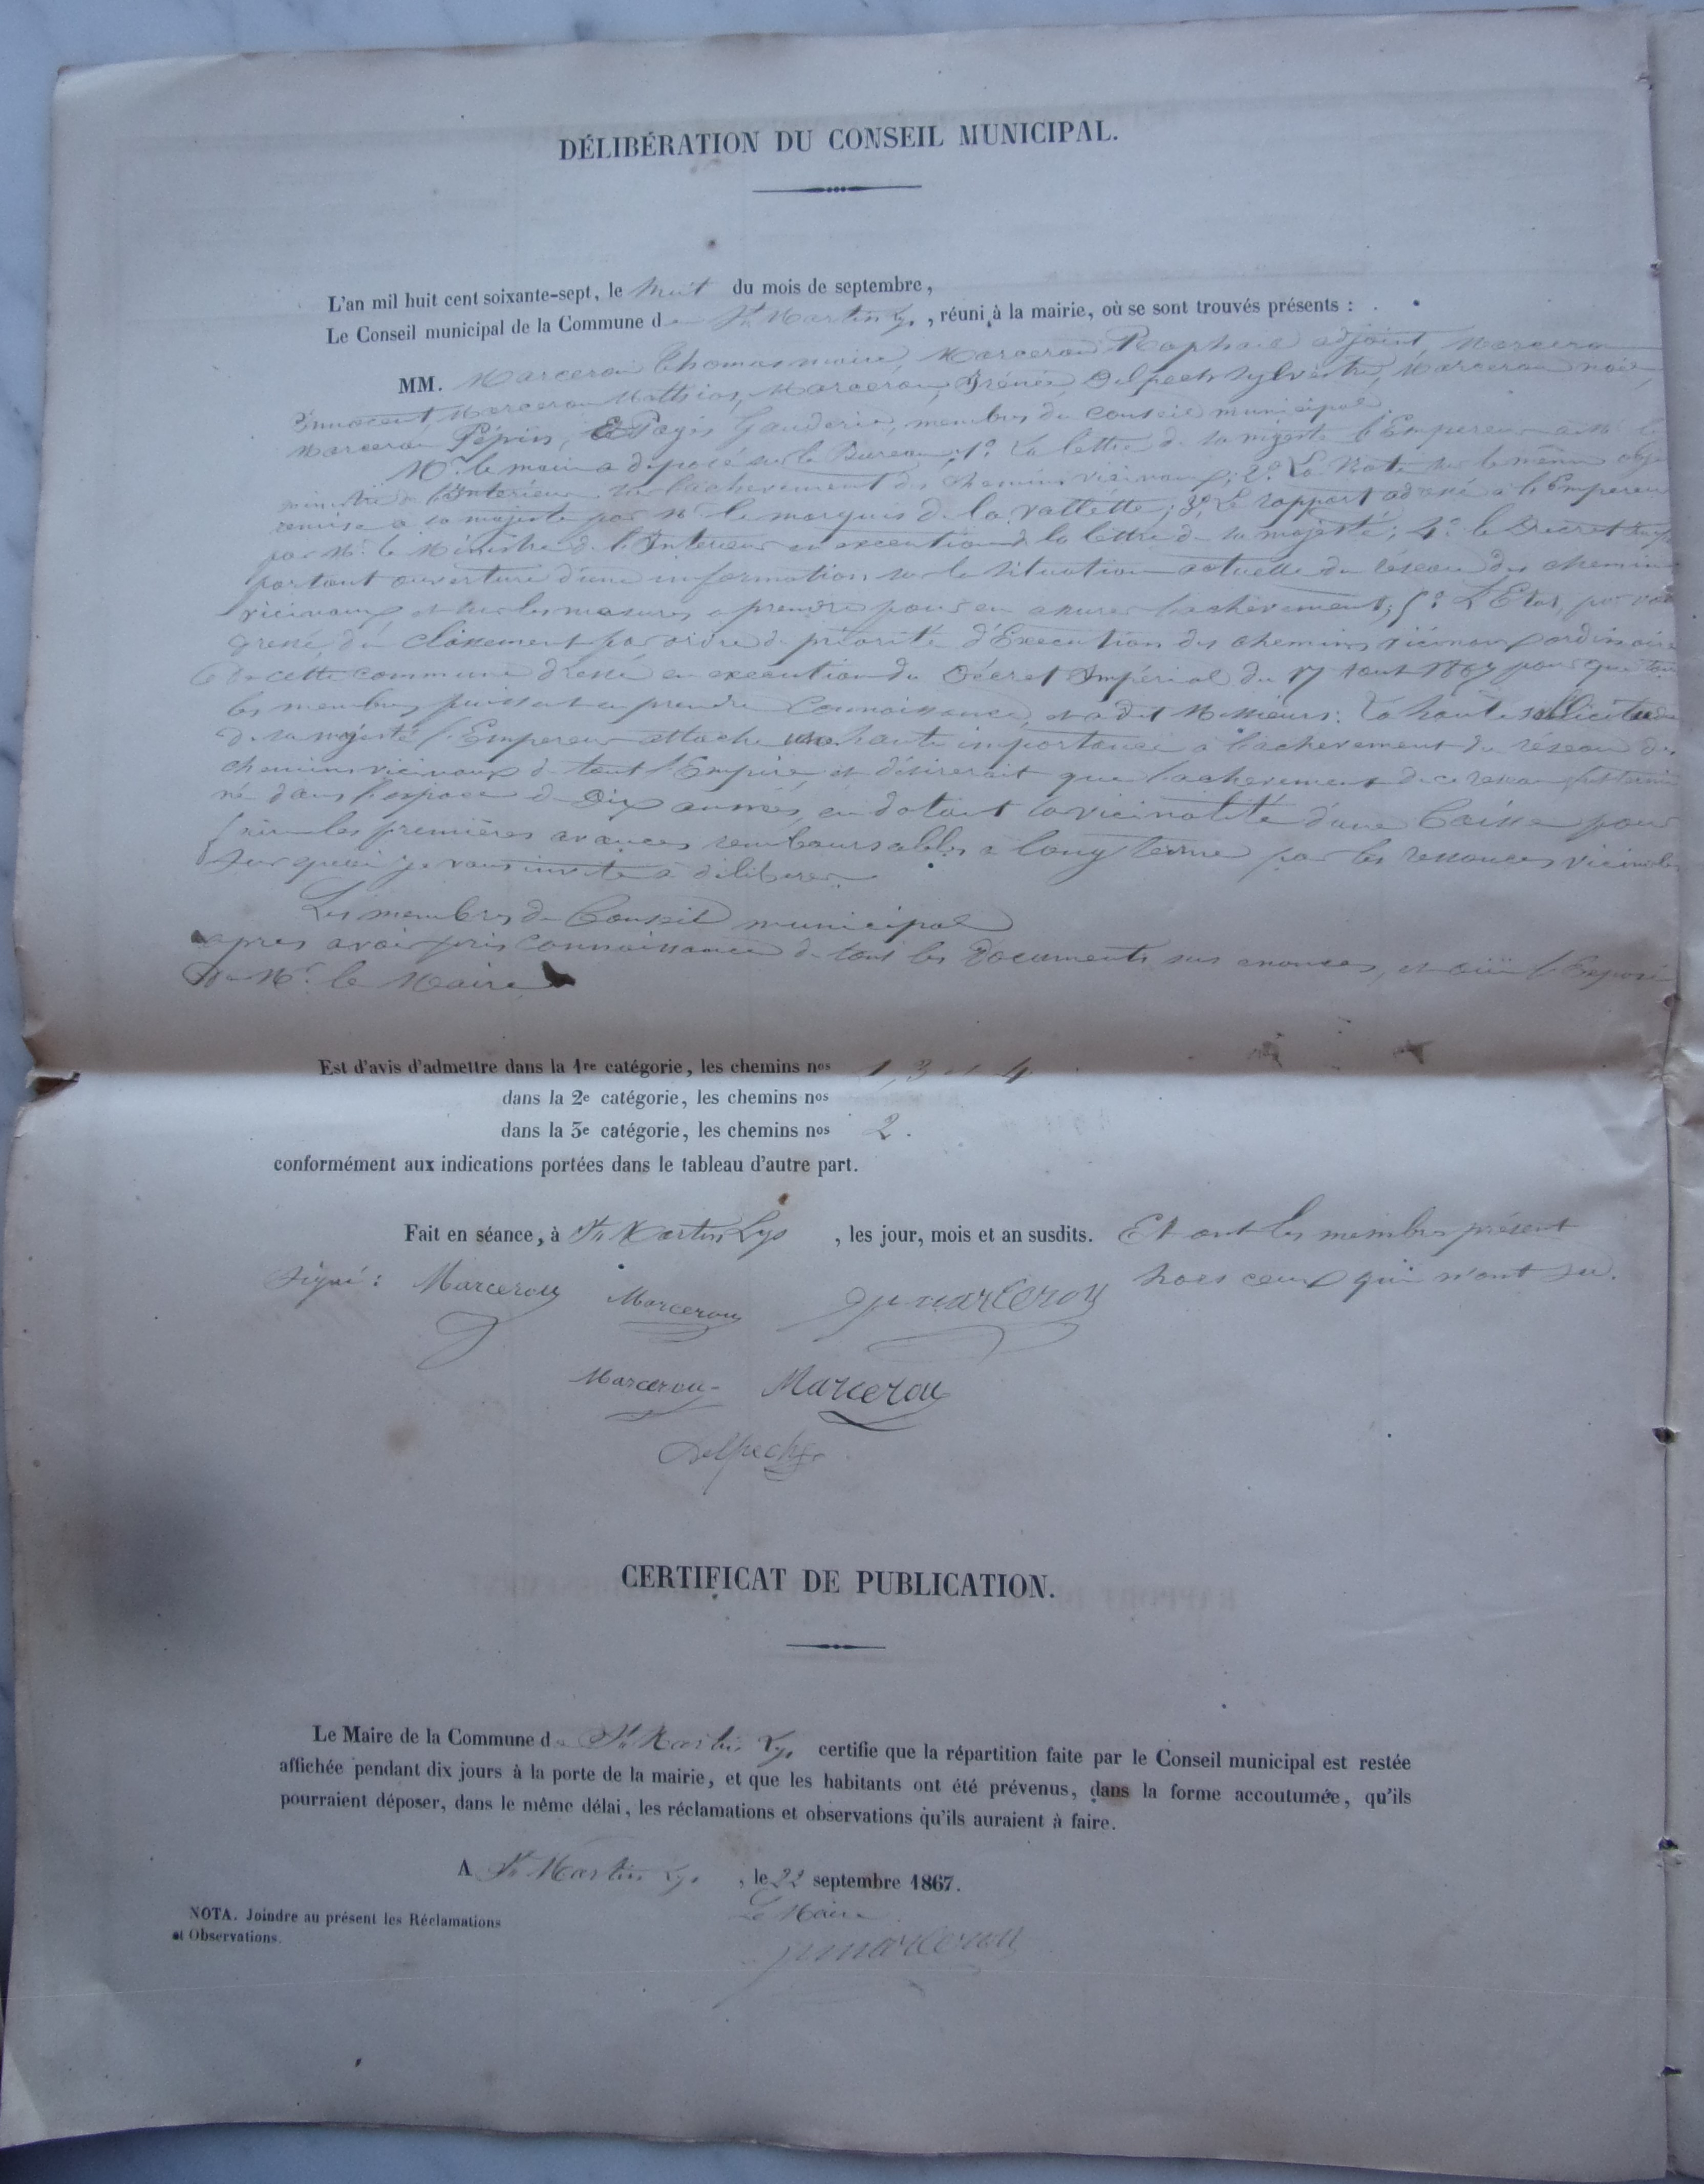 DÉLIBÉRATION DU CONSEIL MUNICIPAL.
L'an mil huit cent soixante-sept, le huit du mois de septembre,
Le Conseil municipal de la Commune de St Martin Lys, réuni à la mairie, où se sont trouvés présents :
MM. Marcerou Thomas maire, Marcerou Raphael adjoint, Marcerou
Innocent, Marcerou Mathias, Marcerou Irénée, Delpech Sylvestre, Marcerou noël,
Marcerou Pépin, Et Pagès Gauderic, membres du Conseil municipal.
Mr. le maire a déposé sur le Bureau 1º. La lettre de sa majesté l'Empereur a Mr le
ministre de l'Interieur sur l'achevement des chemins vicinaux; 2º. La Note sur le même objet
remise a sa majesté par Mr le marquis de la Vallette; 3º. Le rapport adressé a l'Empereur
par Mr. le Ministre de l'Interieur en execution de la lettre de sa majesté; 4º. le Décret
portant ouverture d'une information sur la situation actuelle du réseau des chemins
vicinaux et sur les mesures a prendre pour en assurer l'achevement; 5º. L'Etat, par
dressé, du classement par ordre de priorité d'Execution des chemins vicinaux ordinaires
de cette commune dressé en execution du Décret Impérial du 17 aout 1867 pour que tous
les membres puissent en prendre Connaissance, et a dit Messieurs: La haute sollicitude
de sa majesté l'Empereur attache une haute importance a l'achevement du réseau des
chemins vicinaux de tout l'Empire et désirerait que l'achevement de ce reseau fut termi
né dans l'espace de Dix années, en dotant la vicinalité d'une Caisse pour
les premières avances remboursables a long terme par les ressources vicinales
Sur quoi je vous invite a déliberer.
Les membres du Conseil municipal
apres avoir pris connaissance de tous les Documents sus enoncés, et ouï l'Exposé
de Mr. le Maire
Est d'avis d'admettre dans la 1re catégorie, les chemins nos 1, 3 et 4
dans la 2e catégorie, les chemins nos
dans la 3e catégorie, les chemins nos 2.
conformément aux indications portées dans le tableau d'autre part.
Fait en séance, à St Martin Lys, les jour, mois et an susdits. Et ont les membres présent
Signé : Marcerou Marcerou Marcerou hors ceux qui n'ont su.
Marcerou Marcerou
Delpech
CERTIFICAT DE PUBLICATION.
Le Maire de la Commune de St Martin Lys certifie que la répartition faite par le Conseil municipal est restée
affichée pendant dix jours à la porte de la mairie, et que les habitants ont été prévenus, dans la forme accoutumée, qu'ils
pourraient déposer, dans le même délai, les réclamations et observations qu'ils auraient à faire.
A St Martin Lys, le 22 septembre 1867.
Le Maire
Marcerou
NOTA. Joindre au présent les Réclamations
et Observations.